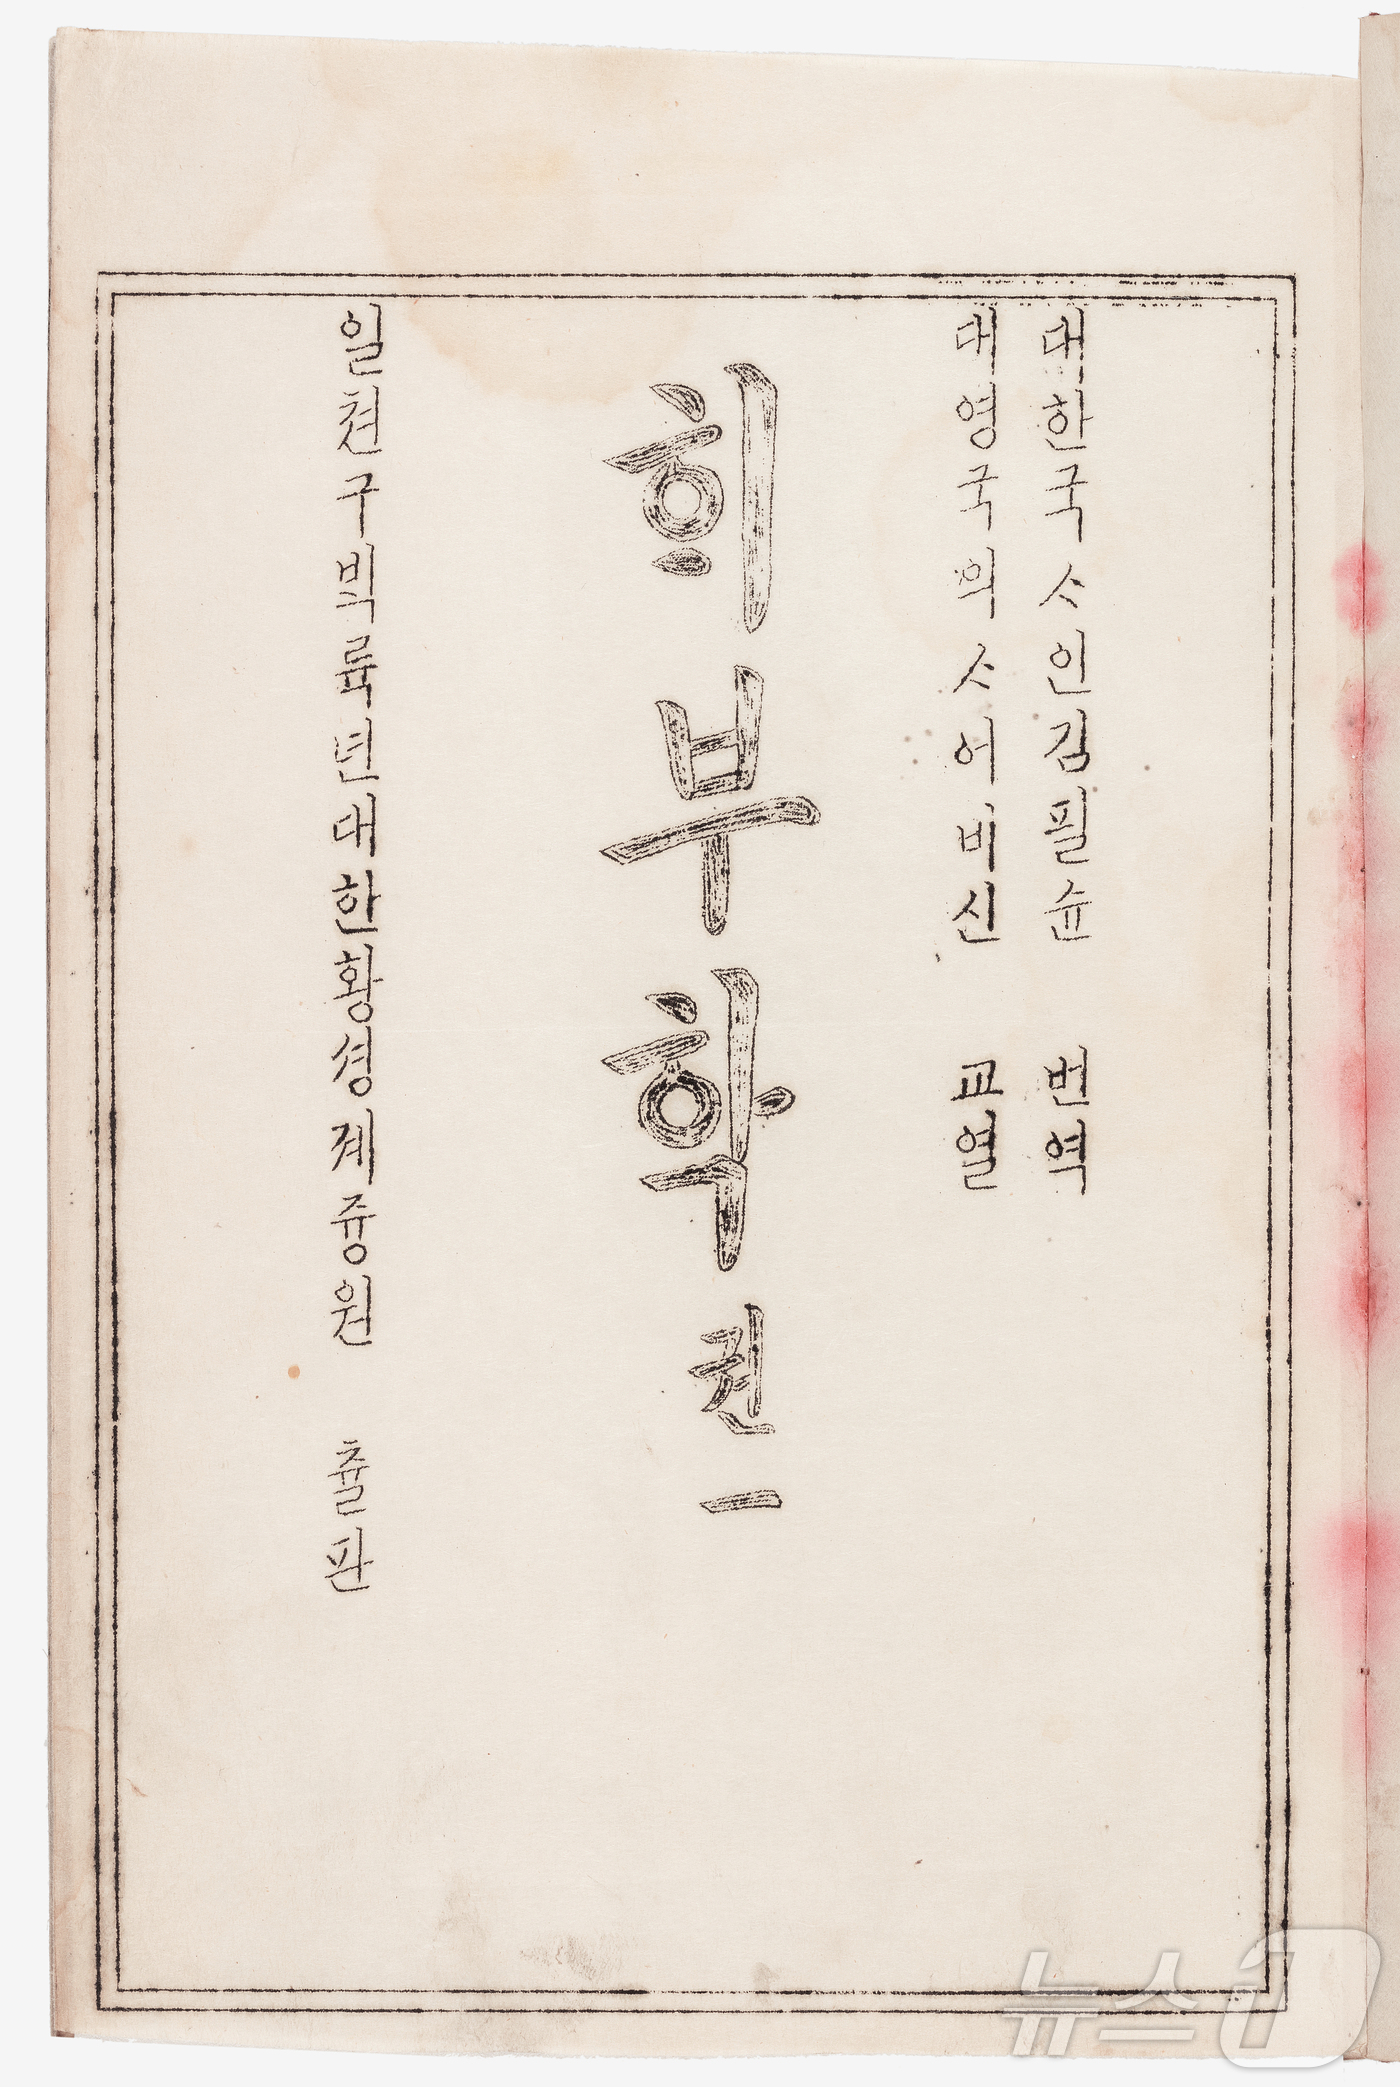 대한국ᄉᆞ인김필슌 번역
대영국의ᄉᆞ어비신 교열
ᄒᆡ부학 권一
일쳔구ᄇᆡᆨ륙년대한황셩졔즁원 츌판
뉴스1